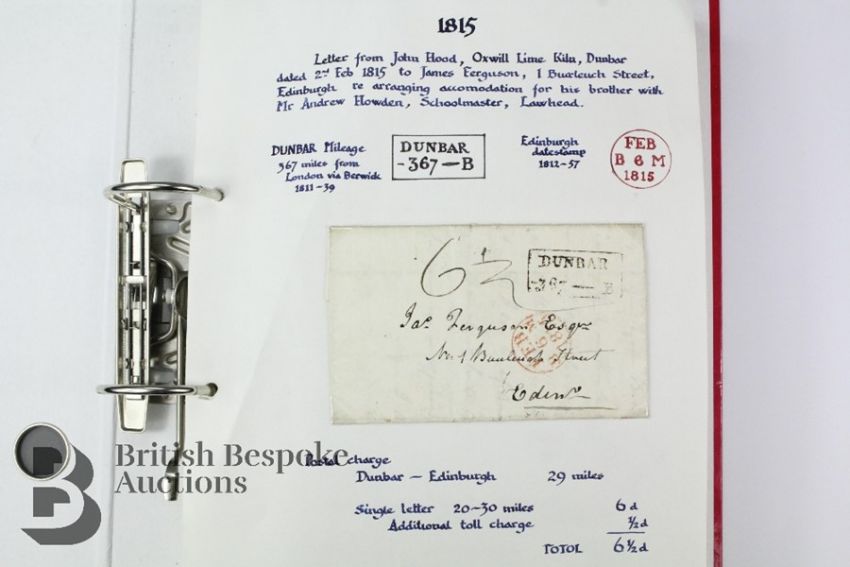 1815
Letter from John Hood, Oxwill Lime Kiln, Dunbar
dated 2nd Feb 1815 to James Ferguson, 1 Buccleuch Street,
Edinburgh re arranging accomodation for his brother with
Mr Andrew Howden, Schoolmaster, Lawhead.
DUNBAR Mileage
367 miles from
London via Berwick
1811-39
DUNBAR
-367-B
Edinburgh
datestamp
1812-57
FEB
B 6 M
1815
6½
DUNBAR
-367-B
Jas. Ferguson Esqr
No. 1 Buccleugh Street
Edinr
FEB
Postal charge
Dunbar - Edinburgh 29 miles
Single letter 20-30 miles 6d
Additional toll charge ½d
TOTAL 6½d
British Bespoke
Auctions
B